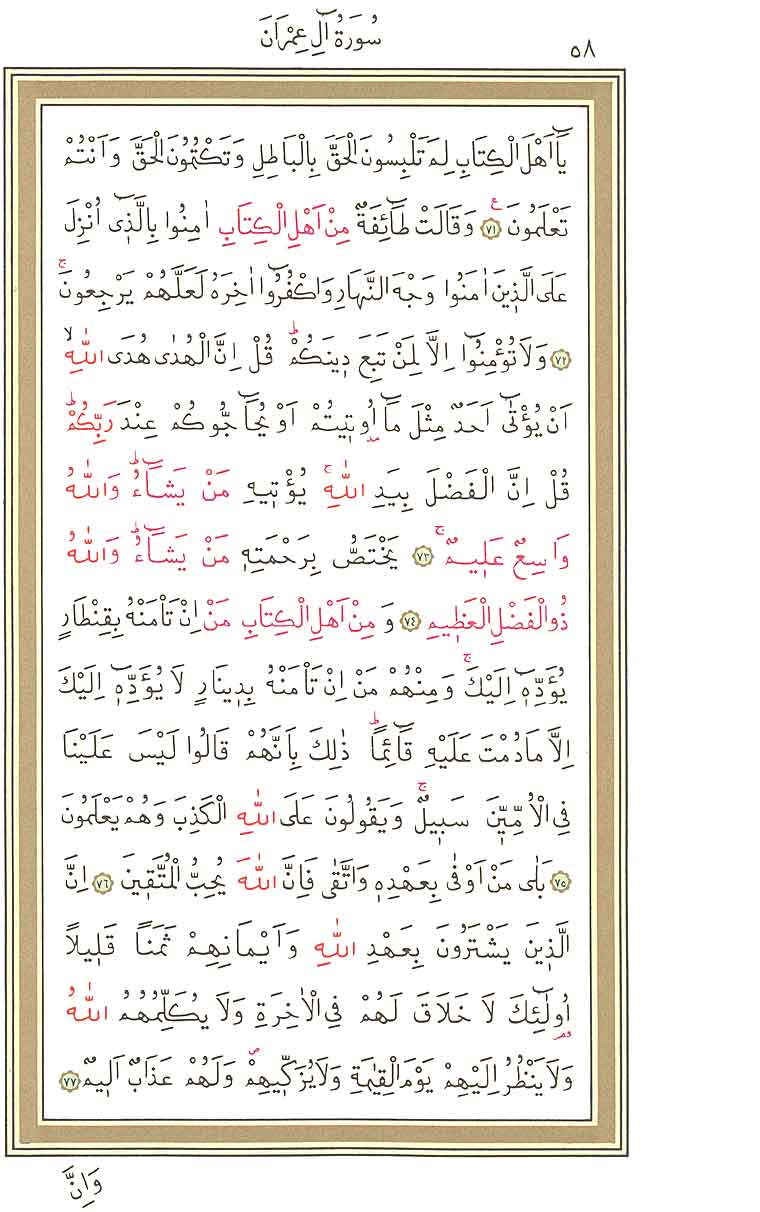 سُورَةُ اٰلِ عِمْرَانَ
٥٨
يَٓا اَهْلَ الْكِتَابِ لِمَ تَلْبِسُونَ الْحَقَّ بِالْبَاطِلِ وَتَكْتُمُونَ الْحَقَّ وَاَنْتُمْ
تَعْلَمُونَ ﴿٧١﴾ وَقَالَتْ طَٓائِفَةٌ مِنْ اَهْلِ الْكِتَابِ اٰمِنُوا بِالَّذ۪ٓي اُنْزِلَ
عَلَى الَّذ۪ينَ اٰمَنُوا وَجْهَ النَّهَارِ وَاكْفُرُٓوا اٰخِرَهُ لَعَلَّهُمْ يَرْجِعُونَۚ
﴿٧٢﴾ وَلَا تُؤْمِنُٓوا اِلَّا لِمَنْ تَبِعَ د۪ينَكُمْۜ قُلْ اِنَّ الْهُدٰى هُدَى اللّٰهِۙ
اَنْ يُؤْتٰٓى اَحَدٌ مِثْلَ مَٓا اُو۫ت۪يتُمْ اَوْ يُحَٓاجُّوكُمْ عِنْدَ رَبِّكُمْۜ
قُلْ اِنَّ الْفَضْلَ بِيَدِ اللّٰهِۚ يُؤْت۪يهِ مَنْ يَشَٓاءُۜ وَاللّٰهُ
وَاسِعٌ عَل۪يمٌۚ ﴿٧٣﴾ يَخْتَصُّ بِرَحْمَتِه۪ مَنْ يَشَٓاءُۜ وَاللّٰهُ
ذُو الْفَضْلِ الْعَظ۪يمِ ﴿٧٤﴾ وَمِنْ اَهْلِ الْكِتَابِ مَنْ اِنْ تَأْمَنْهُ بِقِنْطَارٍ
يُؤَدِّه۪ٓ اِلَيْكَۚ وَمِنْهُمْ مَنْ اِنْ تَأْمَنْهُ بِد۪ينَارٍ لَا يُؤَدِّه۪ٓ اِلَيْكَ
اِلَّا مَا دُمْتَ عَلَيْهِ قَٓائِمًاۜ ذٰلِكَ بِاَنَّهُمْ قَالُوا لَيْسَ عَلَيْنَا
فِي الْاُمِّيّ۪نَ سَب۪يلٌۚ وَيَقُولُونَ عَلَى اللّٰهِ الْكَذِبَ وَهُمْ يَعْلَمُونَ
﴿٧٥﴾ بَلٰى مَنْ اَوْفٰى بِعَهْدِه۪ وَاتَّقٰى فَاِنَّ اللّٰهَ يُحِبُّ الْمُتَّق۪ينَ ﴿٧٦﴾ اِنَّ
الَّذ۪ينَ يَشْتَرُونَ بِعَهْدِ اللّٰهِ وَاَيْمَانِهِمْ ثَمَنًا قَل۪يلًا
اُو۬لٰٓئِكَ لَا خَلَاقَ لَهُمْ فِي الْاٰخِرَةِ وَلَا يُكَلِّمُهُمُ اللّٰهُ
وَلَا يَنْظُرُ اِلَيْهِمْ يَوْمَ الْقِيٰمَةِ وَلَا يُزَكّ۪يهِمْۖ وَلَهُمْ عَذَابٌ اَل۪يمٌ ﴿٧٧﴾
وَاِنَّ